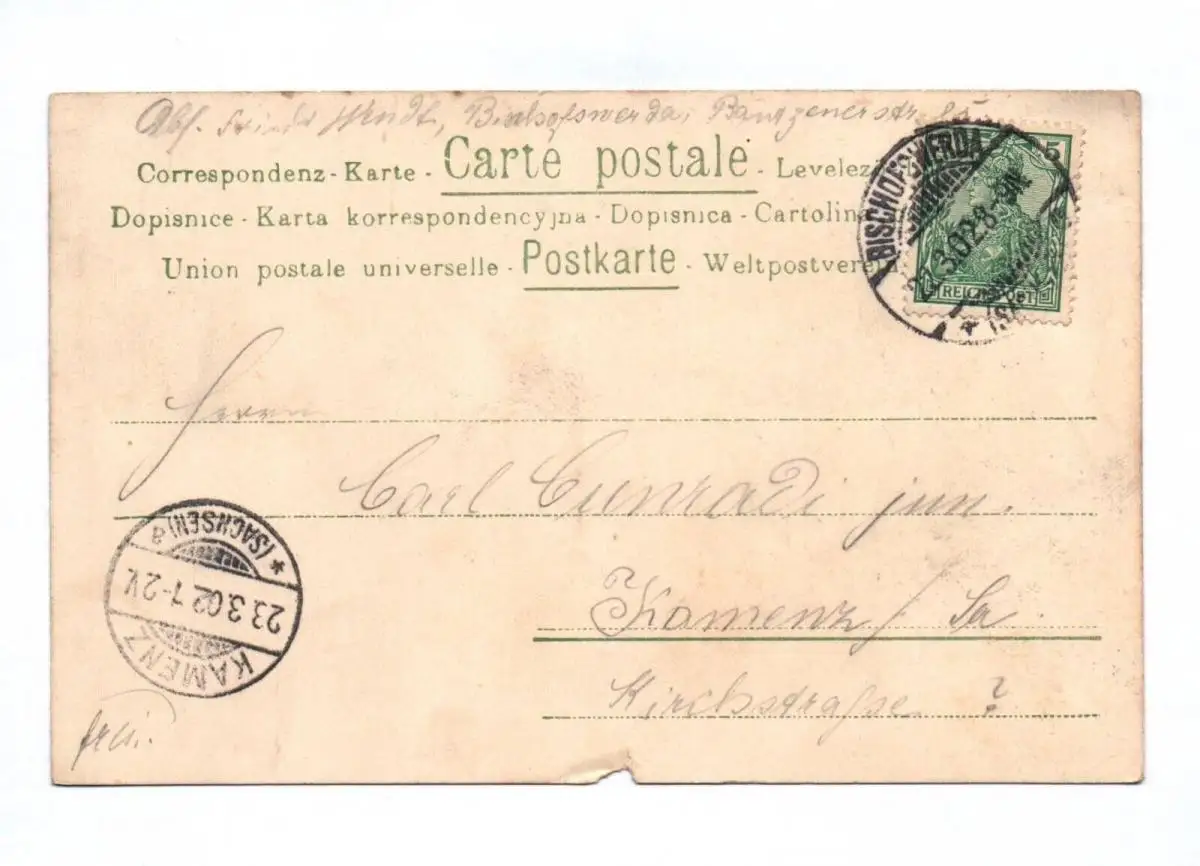 Abs. Wendt, Bischofswerda, Bautzenerstr.
Correspondenz-Karte - Carte postale - Levelez
Dopisnice - Karta korrespondencyjna - Dopisnica - Cartolina
Union postale universelle - Postkarte - Weltpostverein
5 5
REICHSPOST
BISCHOFSWERDA
3.02.8-
Herrn
Carl Cunradi jun.
Kamenz / Sa
Kirchstraße ?
* (SACHSEN) a
23.3.02 1-2V.
KAMENZ
frei.